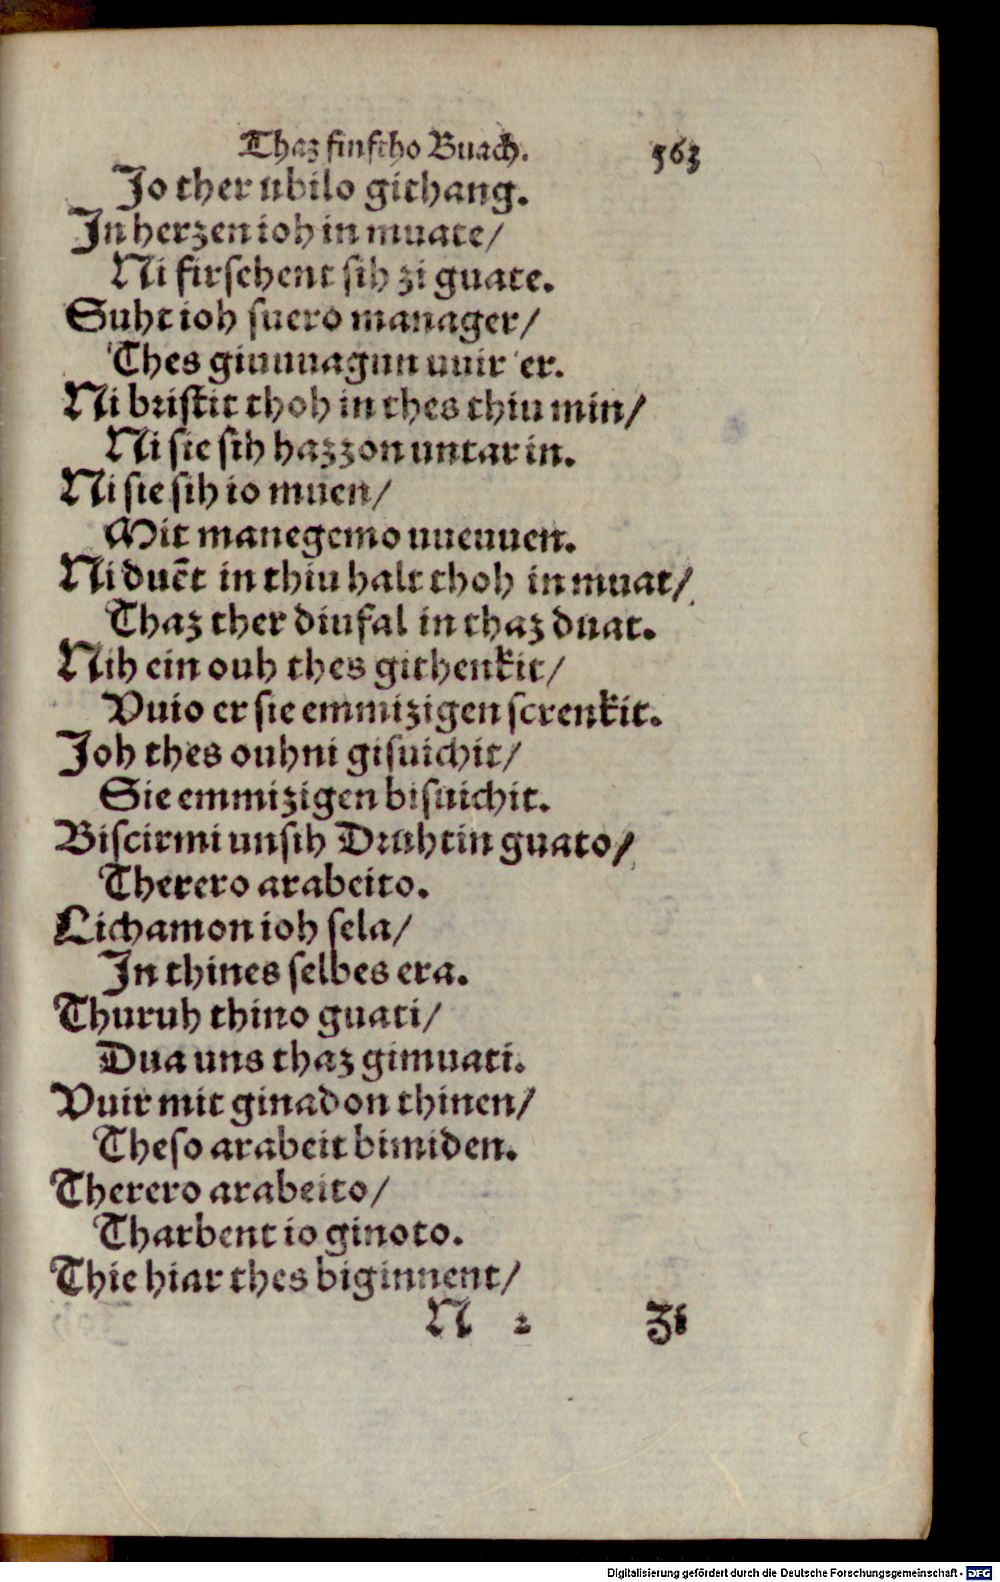 Thaz finftho Buach. 563
Jo ther ubilo githang.
In herzen ioh in muate/
Ni firsehent sih zi guate.
Suht ioh suero manager/
Thes giuuuagun uuir er.
Ni bristit thoh in thes thiu min/
Ni sie sih hazzon untar in.
Ni sie sih io muen/
Mit manegemo uueuuen.
Ni duēt in thiu halt thoh in muat/
Thaz ther diufal in thaz duat.
Nih ein ouh thes githenkit/
Vuio er sie emmizigen screnkit.
Joh thes ouh ni gisuichit/
Sie emmizigen bisuichit.
Biscirmi unsih Druhtin guato/
Therero arabeito.
Lichamon ioh sela/
In thines selbes era.
Thuruh thino guati/
Dua uns thaz gimuati.
Vuir mit ginadon thinen/
Theso arabeit bimiden.
Therero arabeito/
Tharbent io ginoto.
Thie hiar thes biginnent/
N 2 Zi
Digitalisierung gefördert durch die Deutsche Forschungsgemeinschaft - DFG